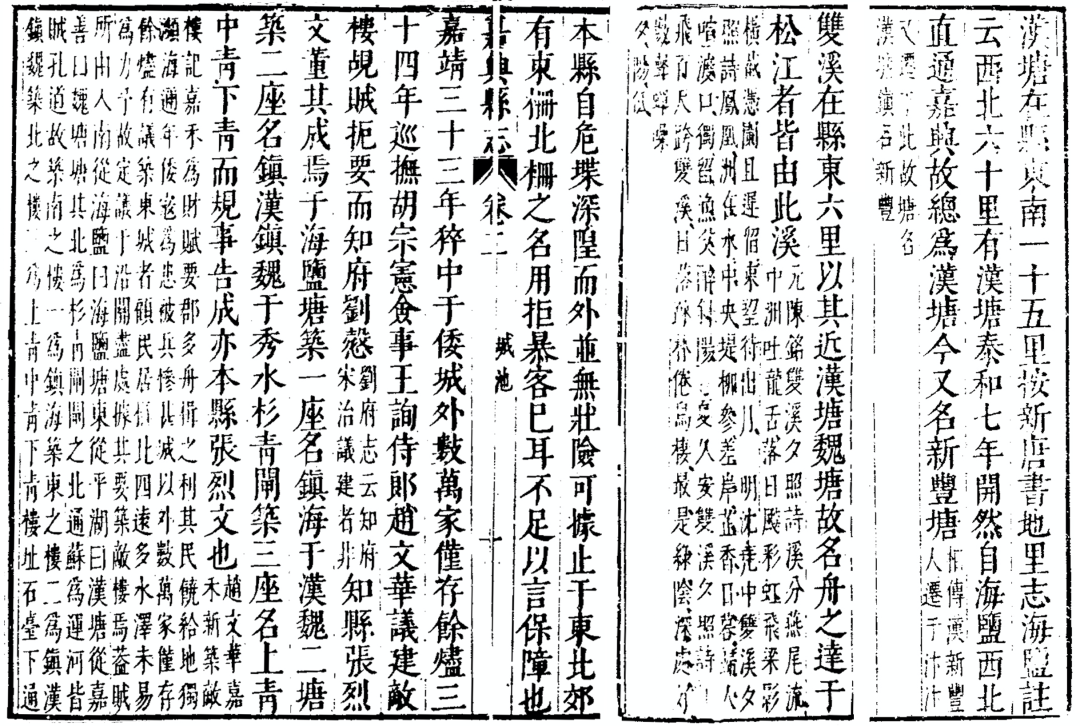 漢塘在縣東南一十五里按新唐書地里志海鹽註
云西北六十里有漢塘泰和七年開然自海鹽西北
直通嘉興故總爲漢塘今又名新豐塘
相傳漢新豐
人遷于
此故塘名
漢塘鎮名新豐
雙溪在縣東六里以其近漢塘魏塘故名舟之達于
松江者皆由此溪
元陳銘雙溪夕照詩溪分燕尾流
中洲吐龍舌落日颺彩虹飛梁影
橫截憑闌且遲留東望待出月
明沈堯中雙溪夕
照詩鳳凰洲在水中央堤柳參差岸芷香日暮
渡口獨留漁父
久安雙溪夕照詩
飛 天跨雙溪日落 倦鳥棲最是綠陰深處
數聲蟬噪
夕陽低
本縣自危堞深隍而外並無壯險可據止于東北郊
有東柵北柵之名用拒暴客已耳不足以言保障也
嘉興縣志 卷二 城池 十
嘉靖三十三年稡中于倭城外數萬家僅存餘燼三
十四年巡撫胡宗憲僉事王詢侍郎趙文華議建敵
樓覘賊扼要而知府劉愨
劉府志云知府
宋治議建者非
知縣張烈
文董其成焉于海鹽塘築一座名鎮海于漢魏二塘
築二座名鎮漢鎮魏于秀水杉青閘築三座名上青
中青下青而規事告成亦本縣張烈文也
趙文華嘉
禾新築敵
樓記嘉禾爲財賦要郡多舟楫之利其民饒給地獨
瀕海邇年倭寇爲患被兵慘甚城以外數萬家僅存
餘燼有議築東城者顧民居 比四遠多水澤未易
爲力予故定議于沿關盡處據其要築敵樓焉葢賊
所由人南從海鹽曰海鹽塘東從平湖曰漢塘從嘉
善曰魏塘塘其北爲杉青閘閘之北通蘇爲運河皆
賊孔道故築南之樓一爲鎮海築東之樓二爲鎮漢
鎮魏築北之樓三爲上青中青下青樓址石臺下通